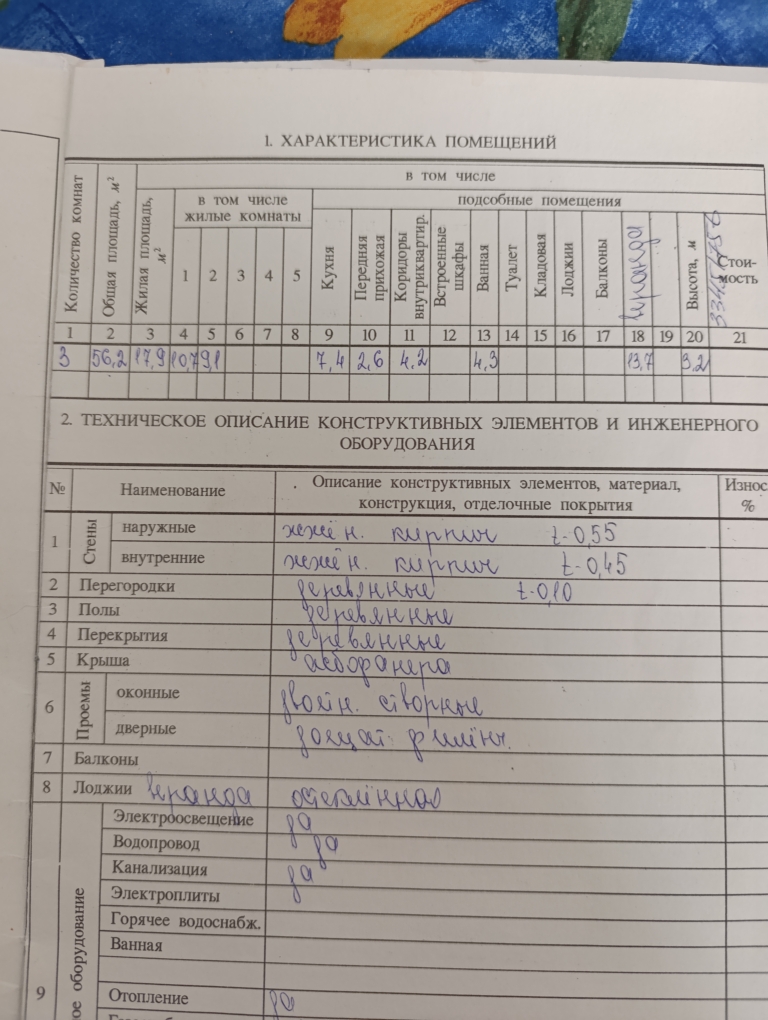 1. ХАРАКТЕРИСТИКА ПОМЕЩЕНИЙ
Количество комнат
Общая площадь, м²
Жилая площадь, м²
в том числе
в том числе жилые комнаты
подсобные помещения
1 2 3 4 5
Кухня
Передняя прихожая
Коридоры внутриквартир.
Встроенные шкафы
Ванная
Туалет
Кладовая
Лоджии
Балконы
веранда
Высота, м
Стои-
мость
1 2 3 4 5 6 7 8 9 10 11 12 13 14 15 16 17 18 19 20 21
3 56,2 17,9 10,7 9,1 7,4 2,6 4,2 4,3 13,7 3,2
2. ТЕХНИЧЕСКОЕ ОПИСАНИЕ КОНСТРУКТИВНЫХ ЭЛЕМЕНТОВ И ИНЖЕНЕРНОГО
ОБОРУДОВАНИЯ
№ Наименование Описание конструктивных элементов, материал, Износ
конструкция, отделочные покрытия %
1 Стены наружные жжён. кирпич t-0,55
внутренние жжён. кирпич t-0,45
2 Перегородки деревянные t-0,10
3 Полы деревянные
4 Перекрытия деревянные
5 Крыша асбофанера
6 Проемы оконные двойн. створные
дверные дощат. филёнч.
7 Балконы
8 Лоджии веранда остеклённая
Электроосвещение да
Водопровод да
Канализация да
Электроплиты
Горячее водоснабж.
Ванная
9 ое оборудование
Отопление да